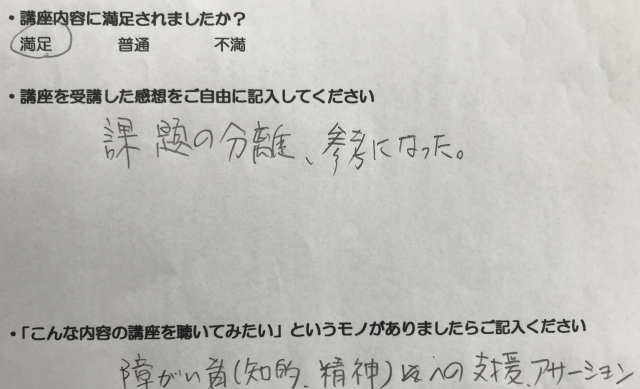 ・講座内容に満足されましたか？
満足 普通 不満
・講座を受講した感想をご自由に記入してください
課題の分離、参考になった。
・「こんな内容の講座を聴いてみたい」というモノがありましたらご記入ください
障がい者(知的、精神)への支援、アサーション